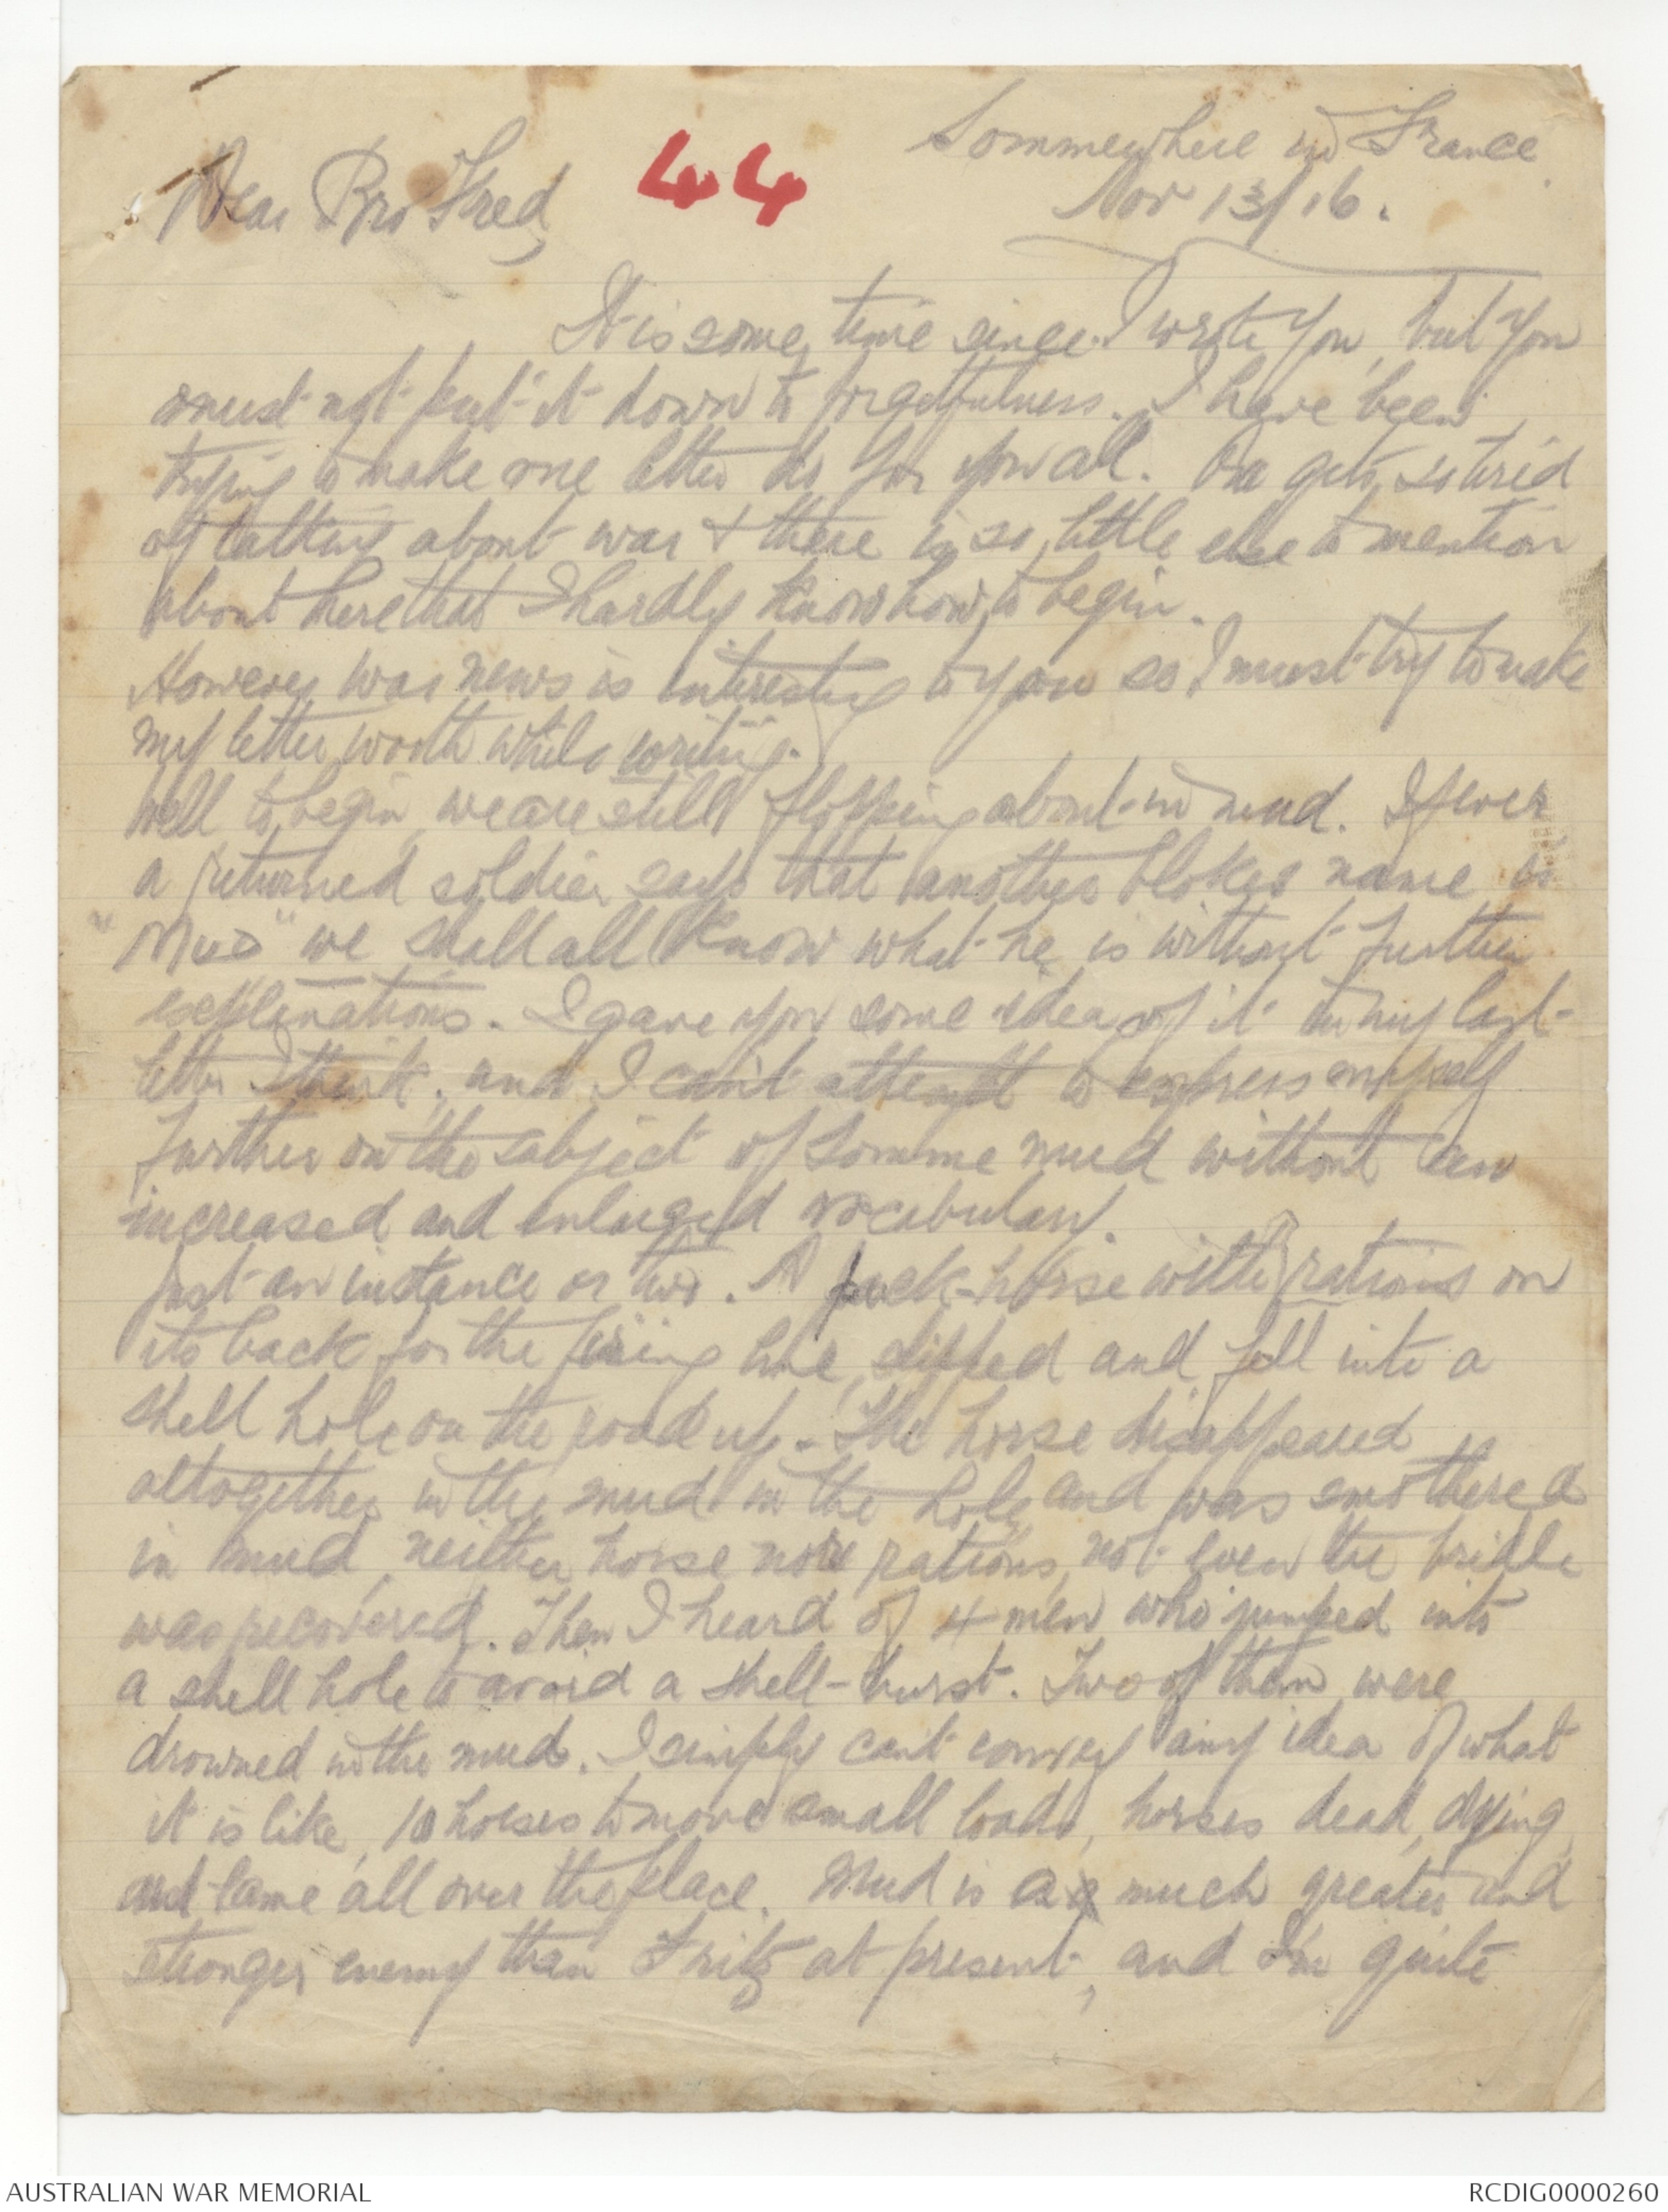 Sommewhere in France
Nov 13/16.
44
Dear Bro Fred,
It is some time since I wrote you, but you
must not put it down to forgetfulness. I have been
trying to make one letter do for you all. One gets so tired
of talking about war & there is so little else to mention
about here that I hardly know how to begin.
However war news is interesting to you so I must try to make
my letter worth while writing.
Well to begin, we are still flopping about in mud. If ever
a returned soldier says that another blokes name is
"Mud" we shall all know what he is without further
explinations. I gave you some idea of it in my last
letter I think, and I can't attempt to express myself
further on the subject of Somme mud without an
increased and enlarged vocabulary.
Just an instance or two. A pack-horse with rations on
its back for the firing line, slipped and fell into a
shell hole on the road up. The horse disappeared
altogether in the mud in the hole and was smothered
in mud, neither horse nor rations, not even the bridle
was recovered. Then I heard of 4 men who jumped into
a shell hole to avoid a shell-burst. Two of them were
drowned in the mud. I simply cant convey any idea of what
it is like, 10 horses to move small loads, horses dead, dying,
and lame all over the place. Mud is a much greater and
stronger enemy than Fritz at present, and I'm quite
AUSTRALIAN WAR MEMORIAL
RCDIG0000260